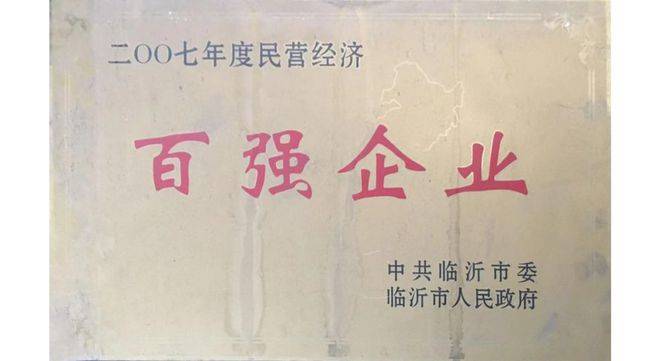 二〇〇七年度民营经济
百强企业
中共临沂市委
临沂市人民政府